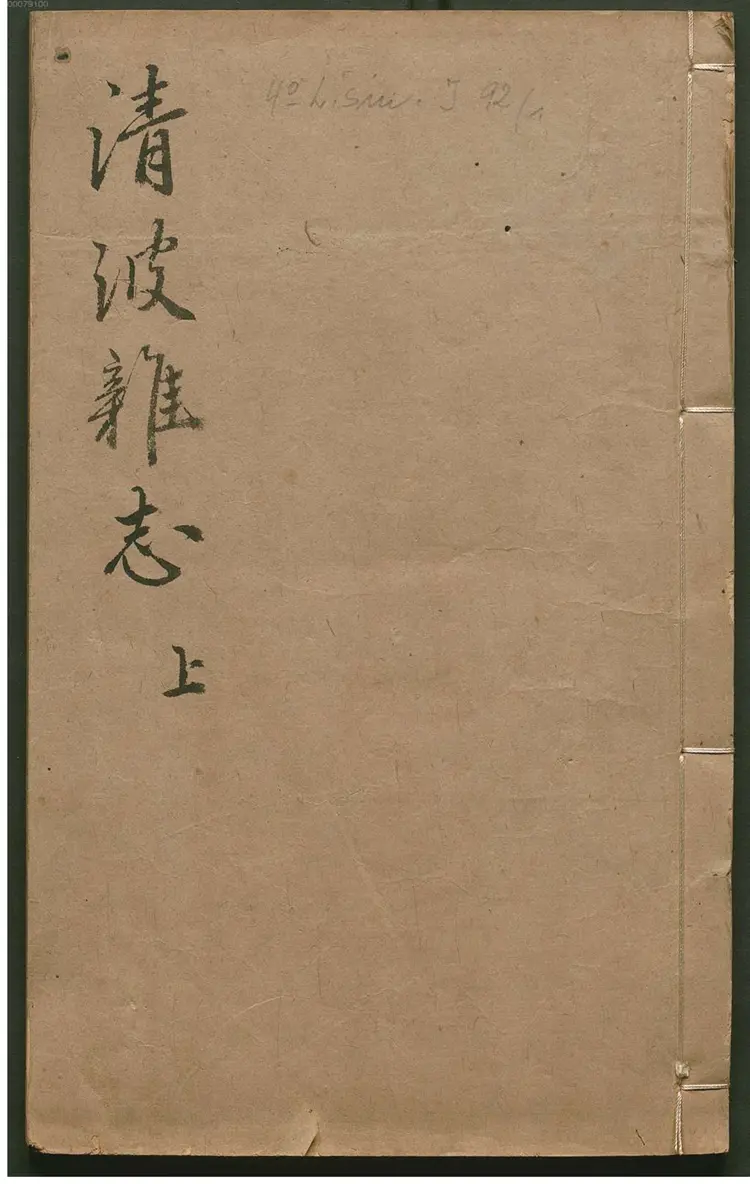 清波雜志
上
4° L. sin. J 92/1
00079100